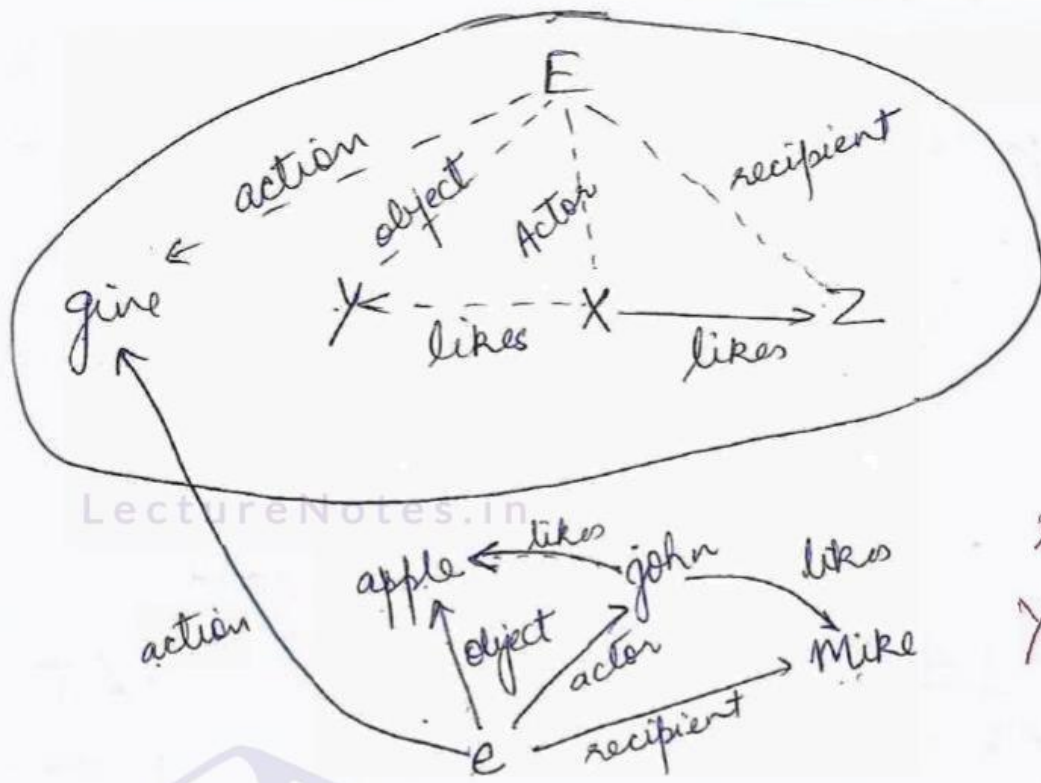 E
action
object
Actor
recipient
give
Y
likes
X
likes
Z
LectureNotes.in
apple
likes
john
likes
action
object
actor
Mike
recipient
e
Y